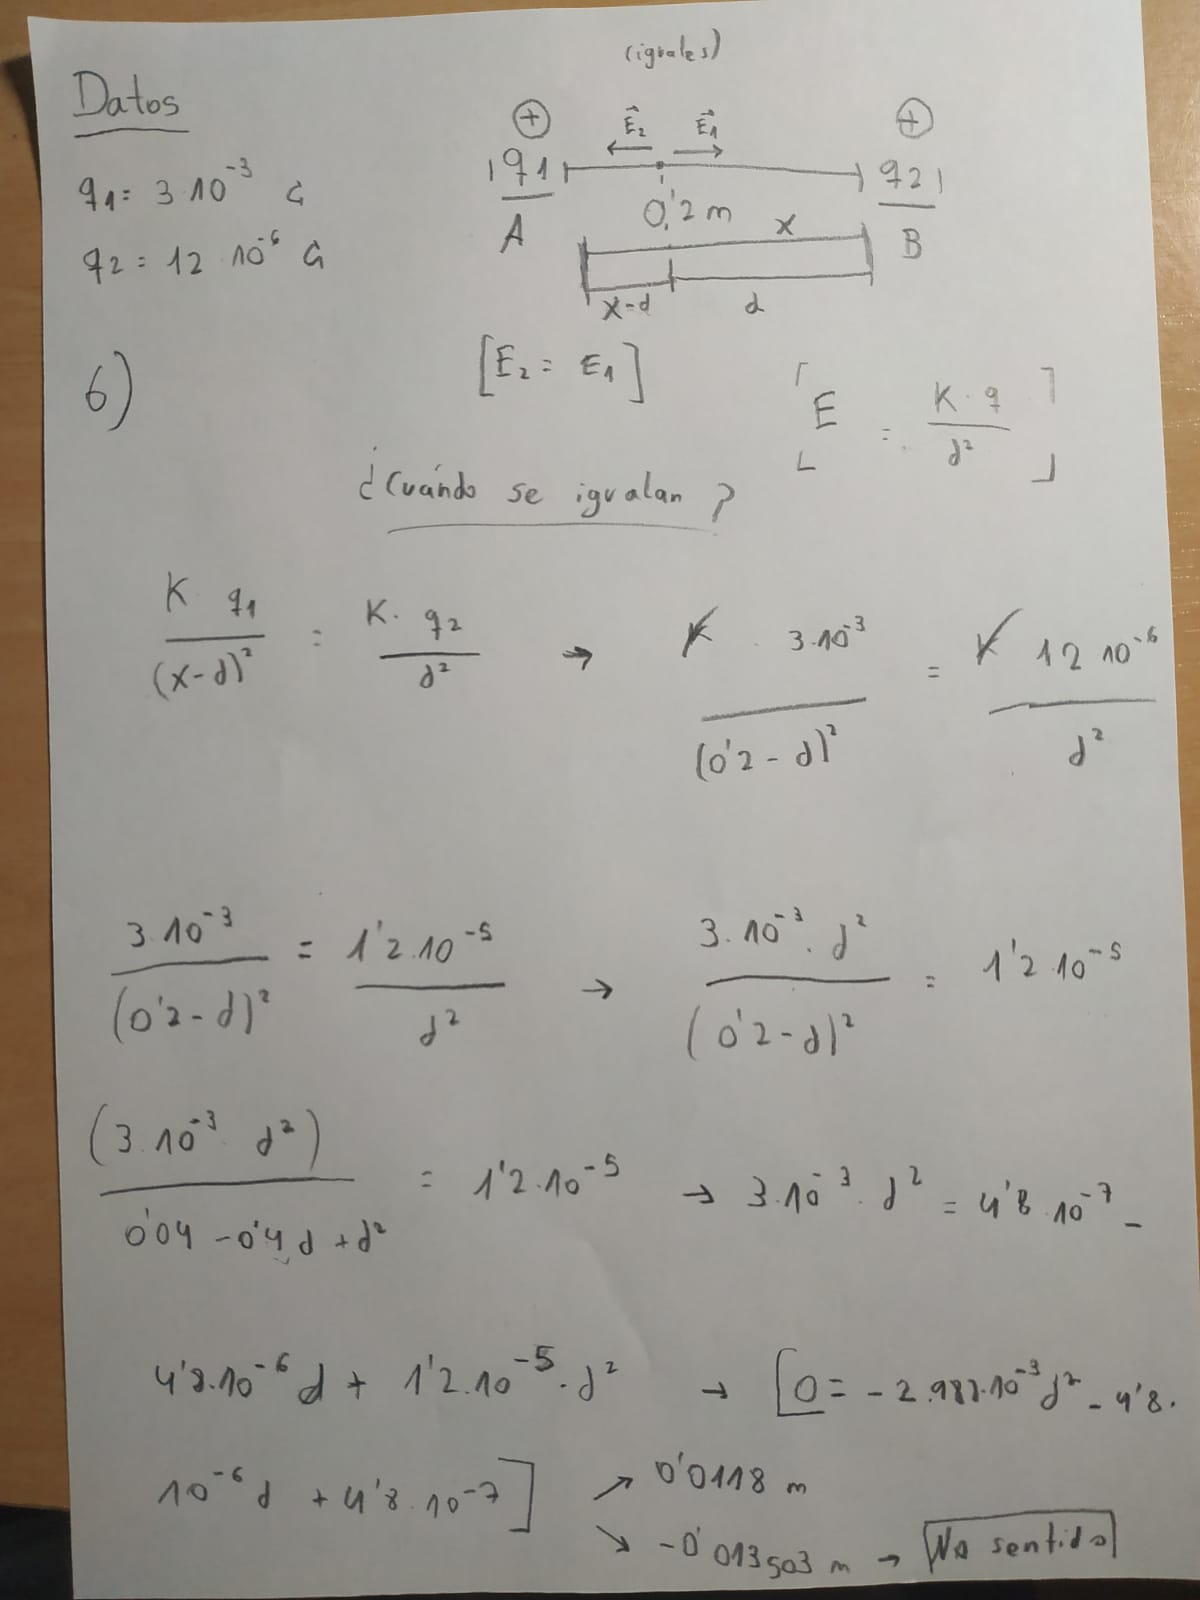 (iguales)
Datos
q1 = 3·10^-3 C
q2 = 12·10^-6 C
+ E⃗2 E⃗1 +
q1 q2
A 0'2 m B
x
x-d d
6)
[E2 = E1]
[E = K·q / d²]
¿Cuándo se igualan?
K q1 / (x-d)² = K·q2 / d² → K · 3·10^-3 / (0'2-d)² = K 12·10^-6 / d²
3·10^-3 / (0'2-d)² = 1'2·10^-5 / d² → 3·10^-3·d² / (0'2-d)² = 1'2·10^-5
(3·10^-3·d²) / 0'04 - 0'4d + d² = 1'2·10^-5 → 3·10^-3·d² = 4'8·10^-7 -
4'8·10^-6 d + 1'2·10^-5·d² → [0 = -2.988·10^-3 d² - 4'8·
10^-6 d + 4'8·10^-7] ↗ 0'0118 m
↘ -0'013503 m → No sentido